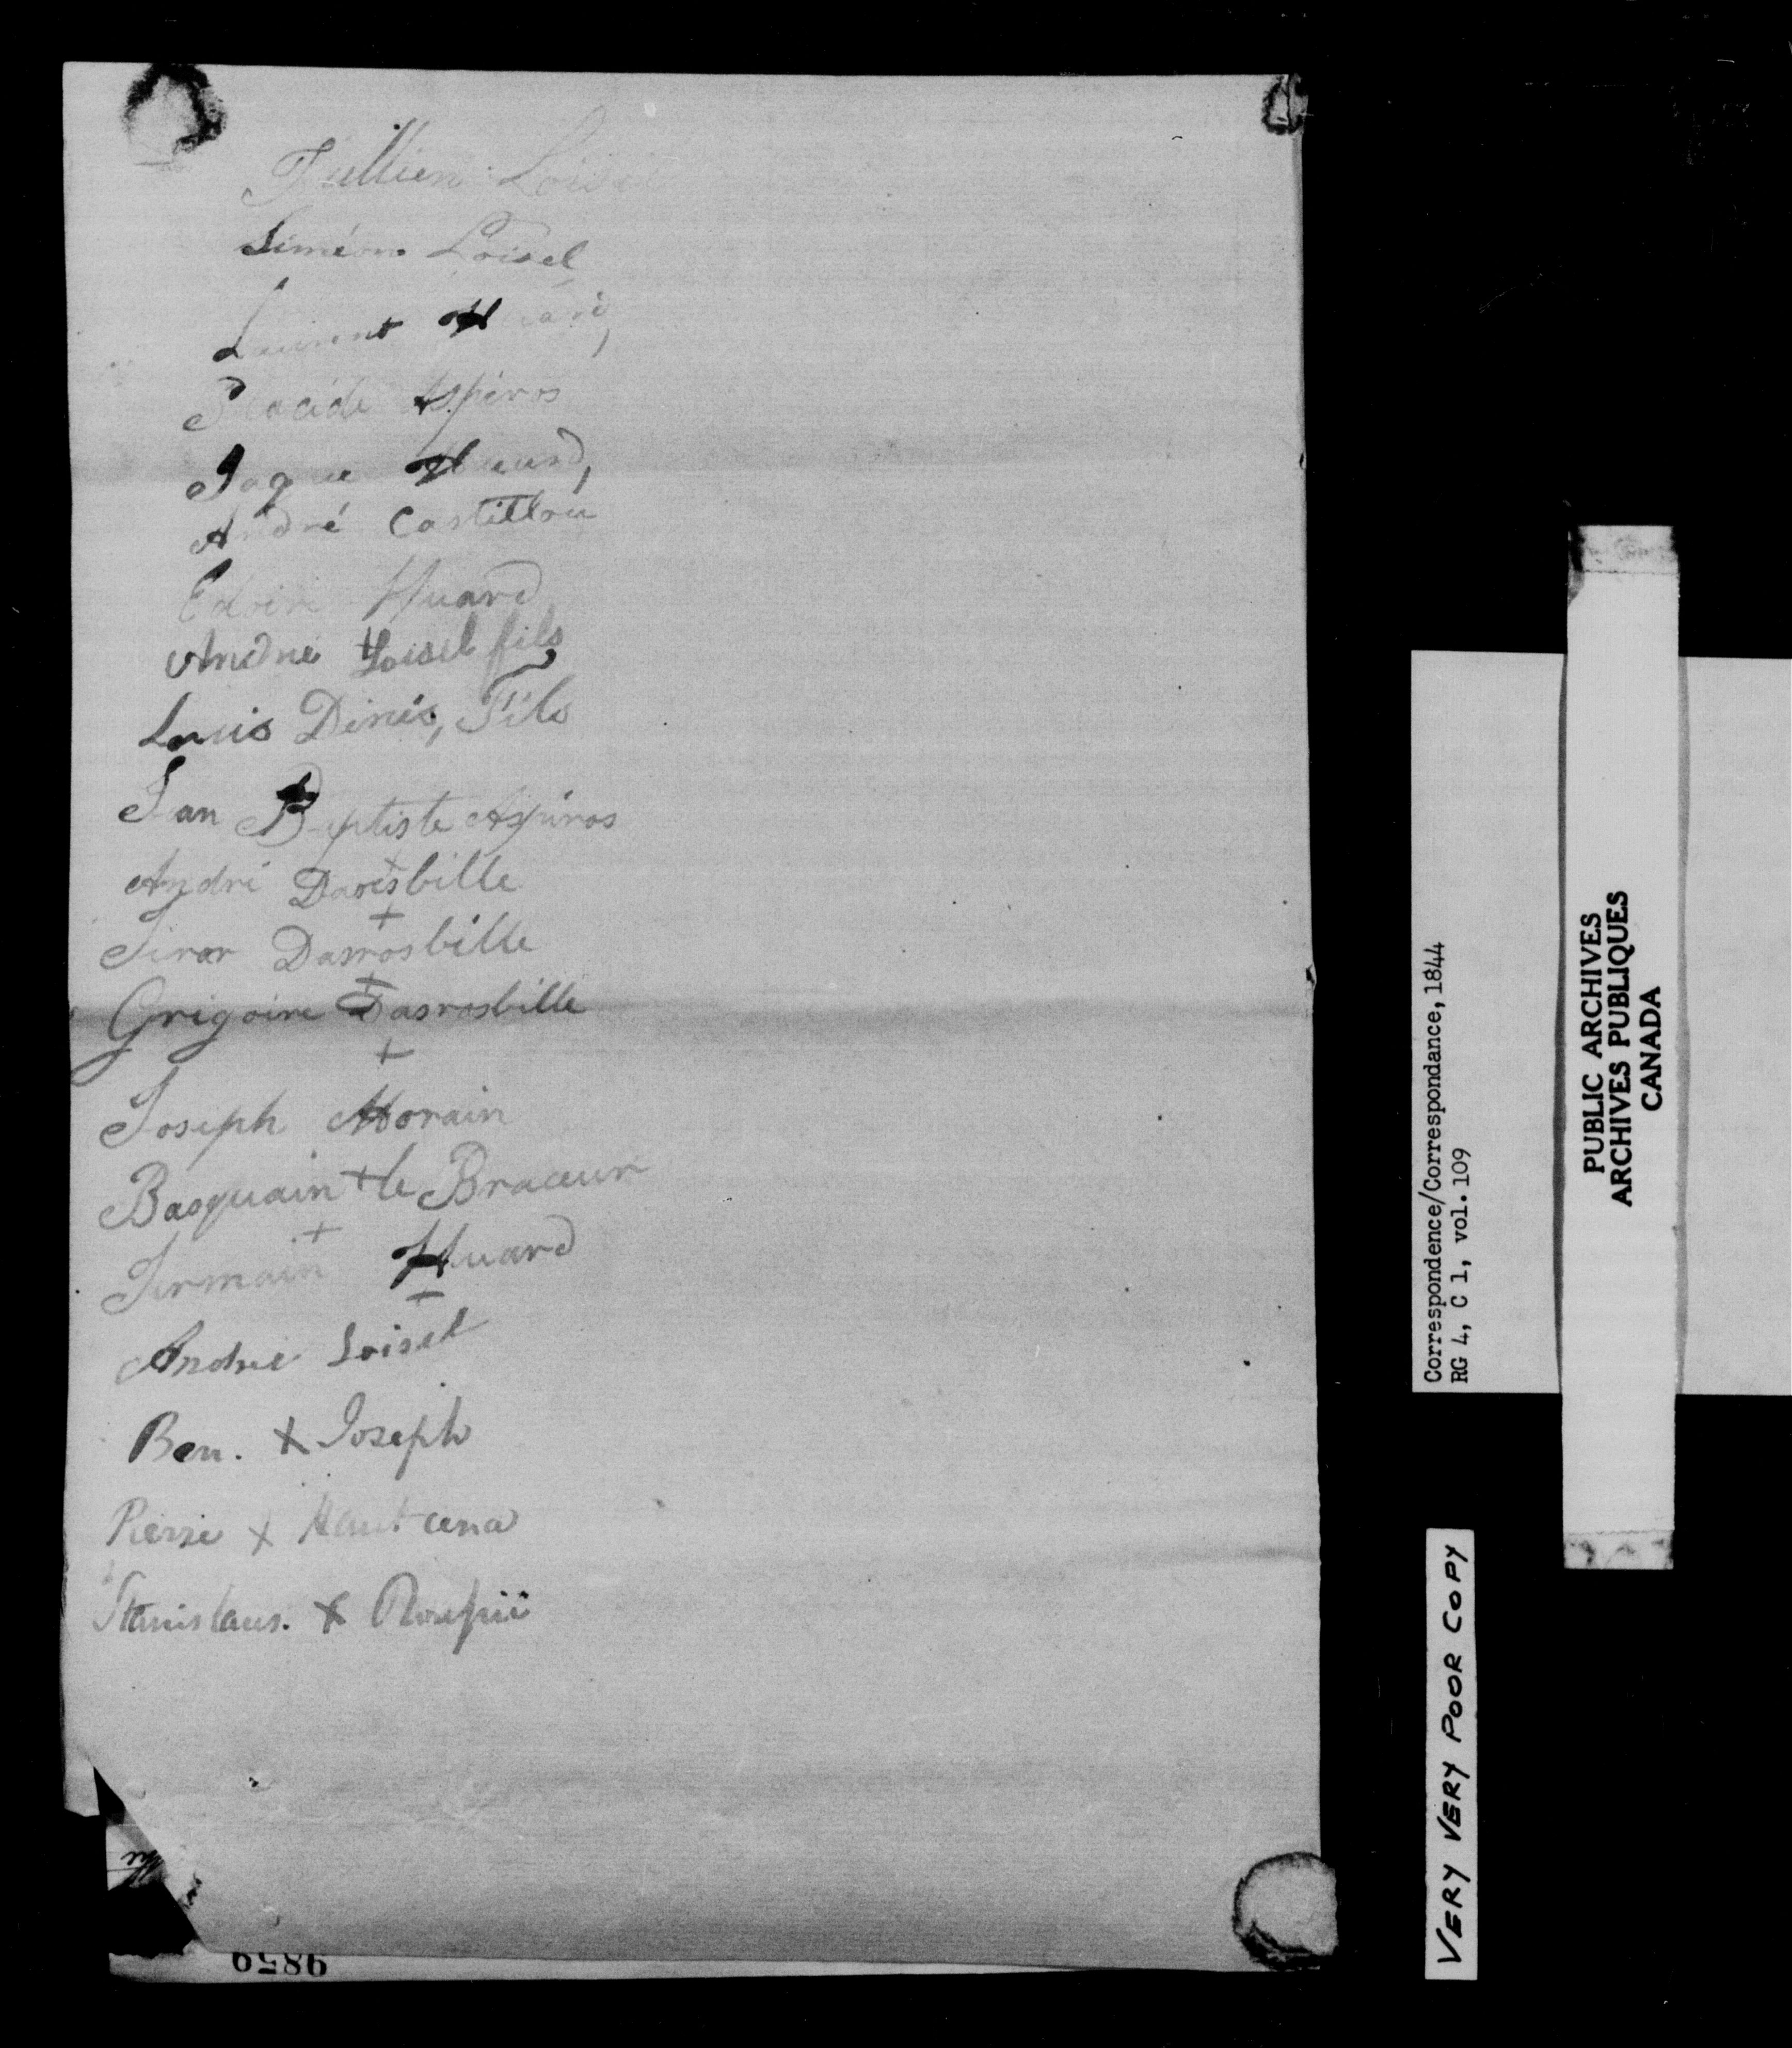 Jullien Loisel
Siméon Loisel
Laurent Huard,
Placide Aspiros
Jaque Huard,
André Castillou
Edoire Huard
André Loisel fils
Louis Denis, Fils
Jan Baptiste Aspiros
André Darosbille
+
Simon Darrosbille
+
Grigoire Dasrosbille
+
Joseph Morain
Basquain + le Braceur
+
Jermain Huard
+
Andrie Loisel
Ben. + Joseph
Pierre + Hautcena
Stanislaus. +
9859
Correspondence/Correspondance, 1844
RG 4, C 1, vol. 109
PUBLIC ARCHIVES
ARCHIVES PUBLIQUES
CANADA
VERY VERY POOR COPY